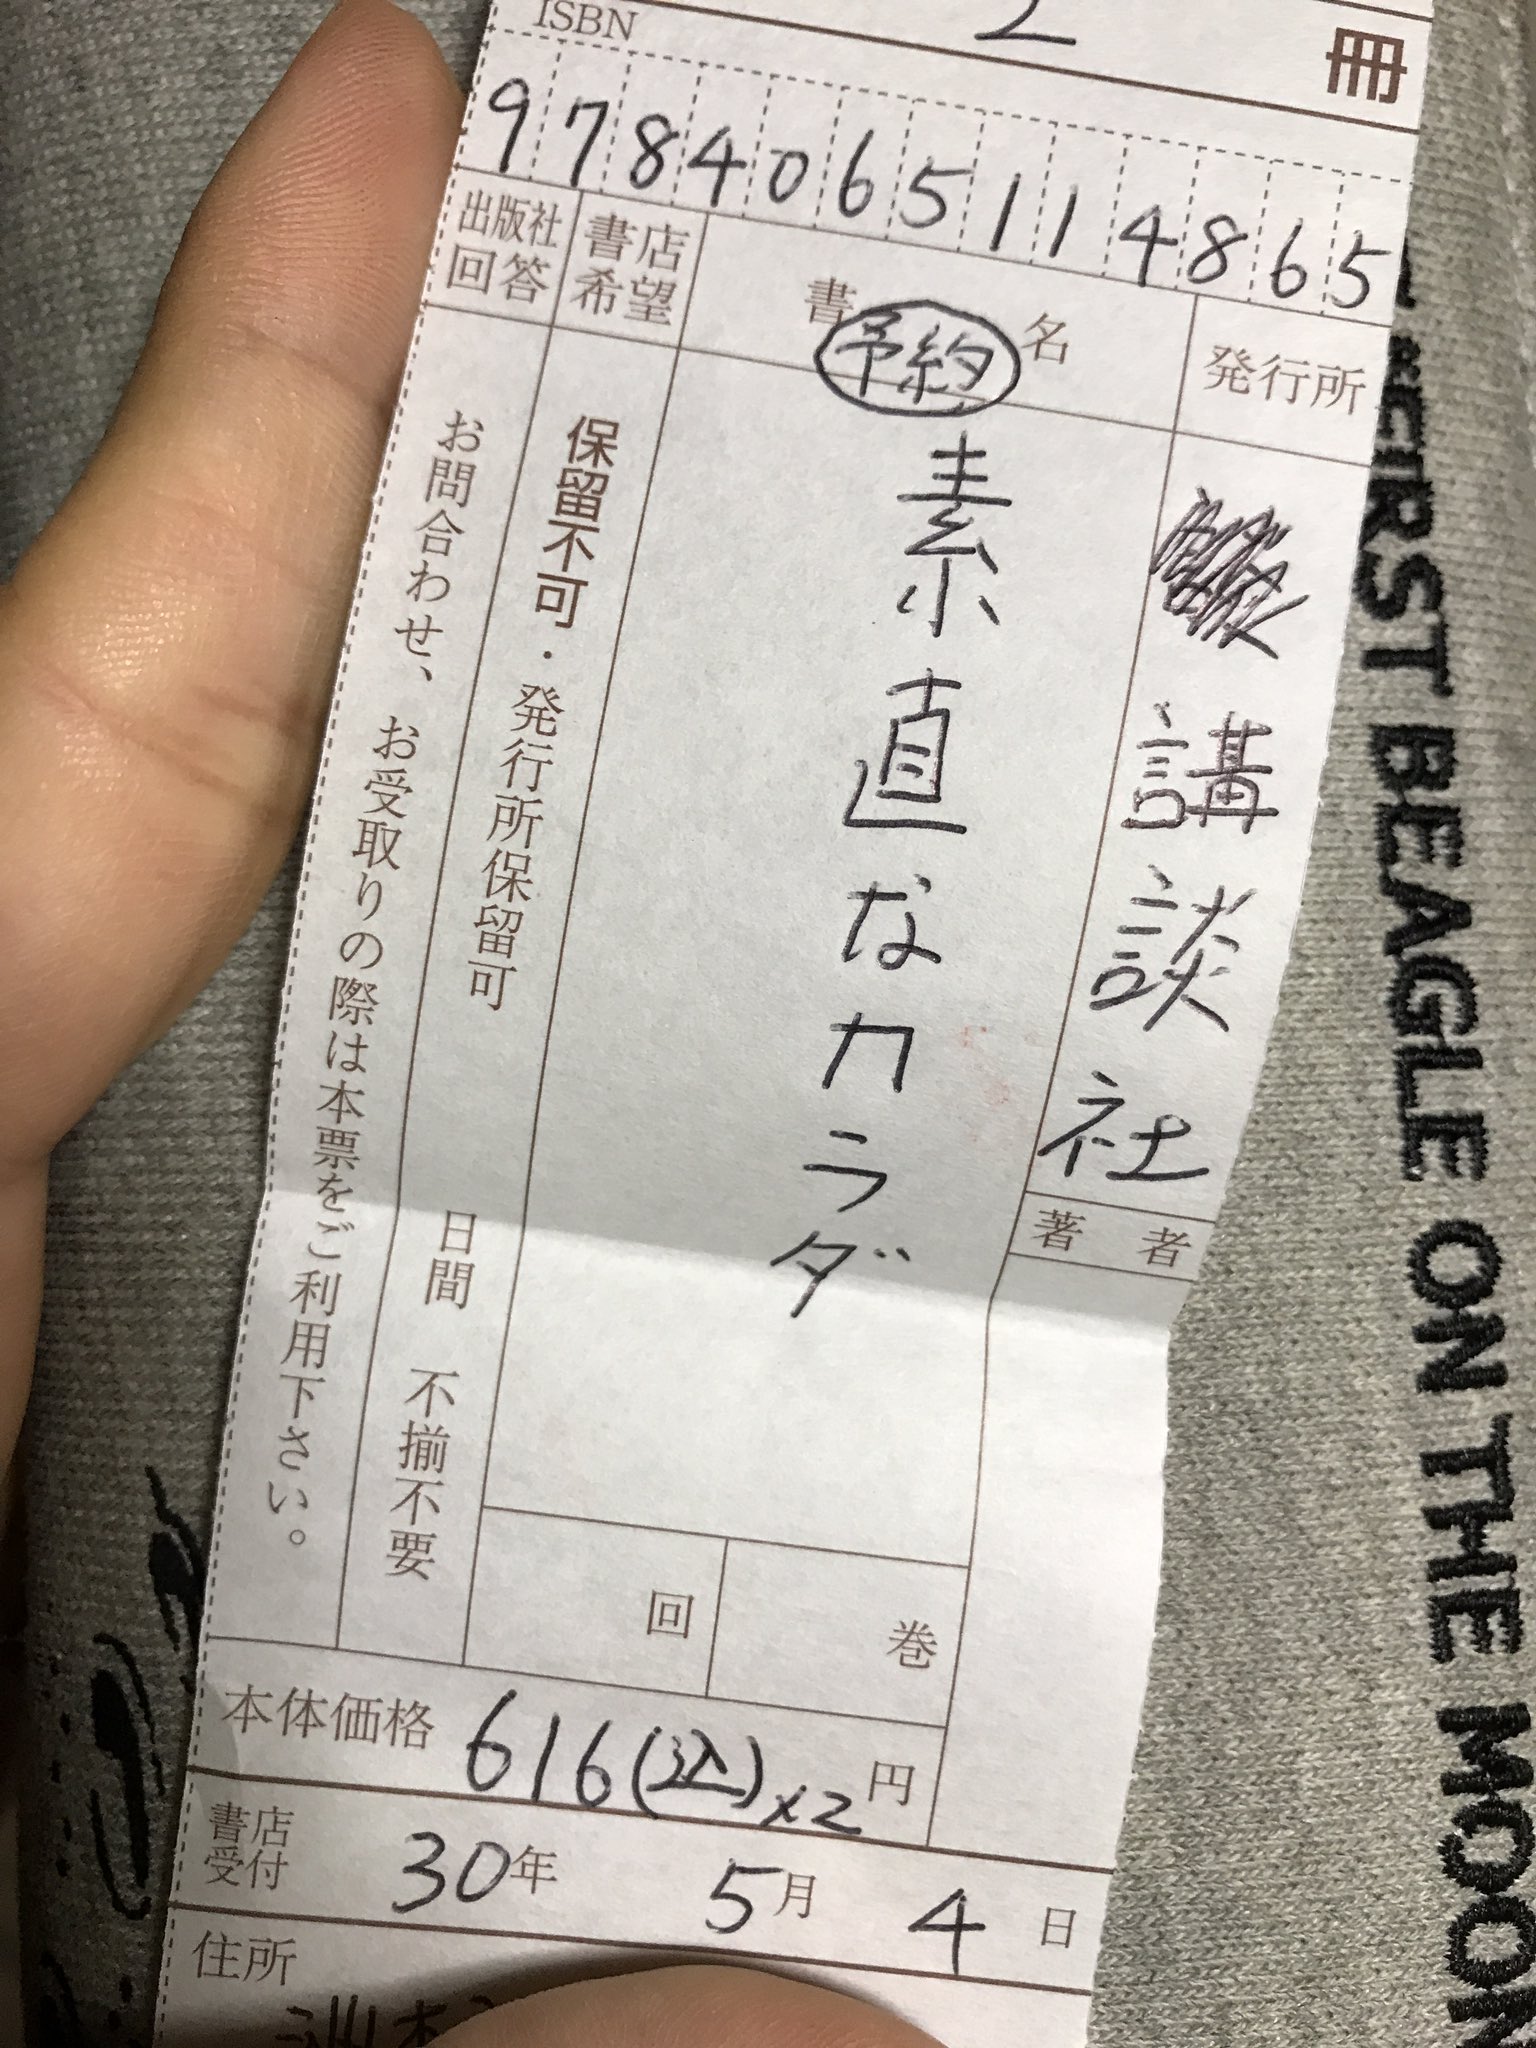 2 冊
ISBN
9784065114865
発行所
講談社
著者
書名
予約
素直なカラダ
巻
回
書店希望
保留不可・発行所保留可
日間 不揃不要
出版社回答
お問合わせ、お受取りの際は本票をご利用下さい。
本体価格 616(込)×2 円
書店受付 30年 5月 4日
住所
FIRST BEAGLE ON THE MOON